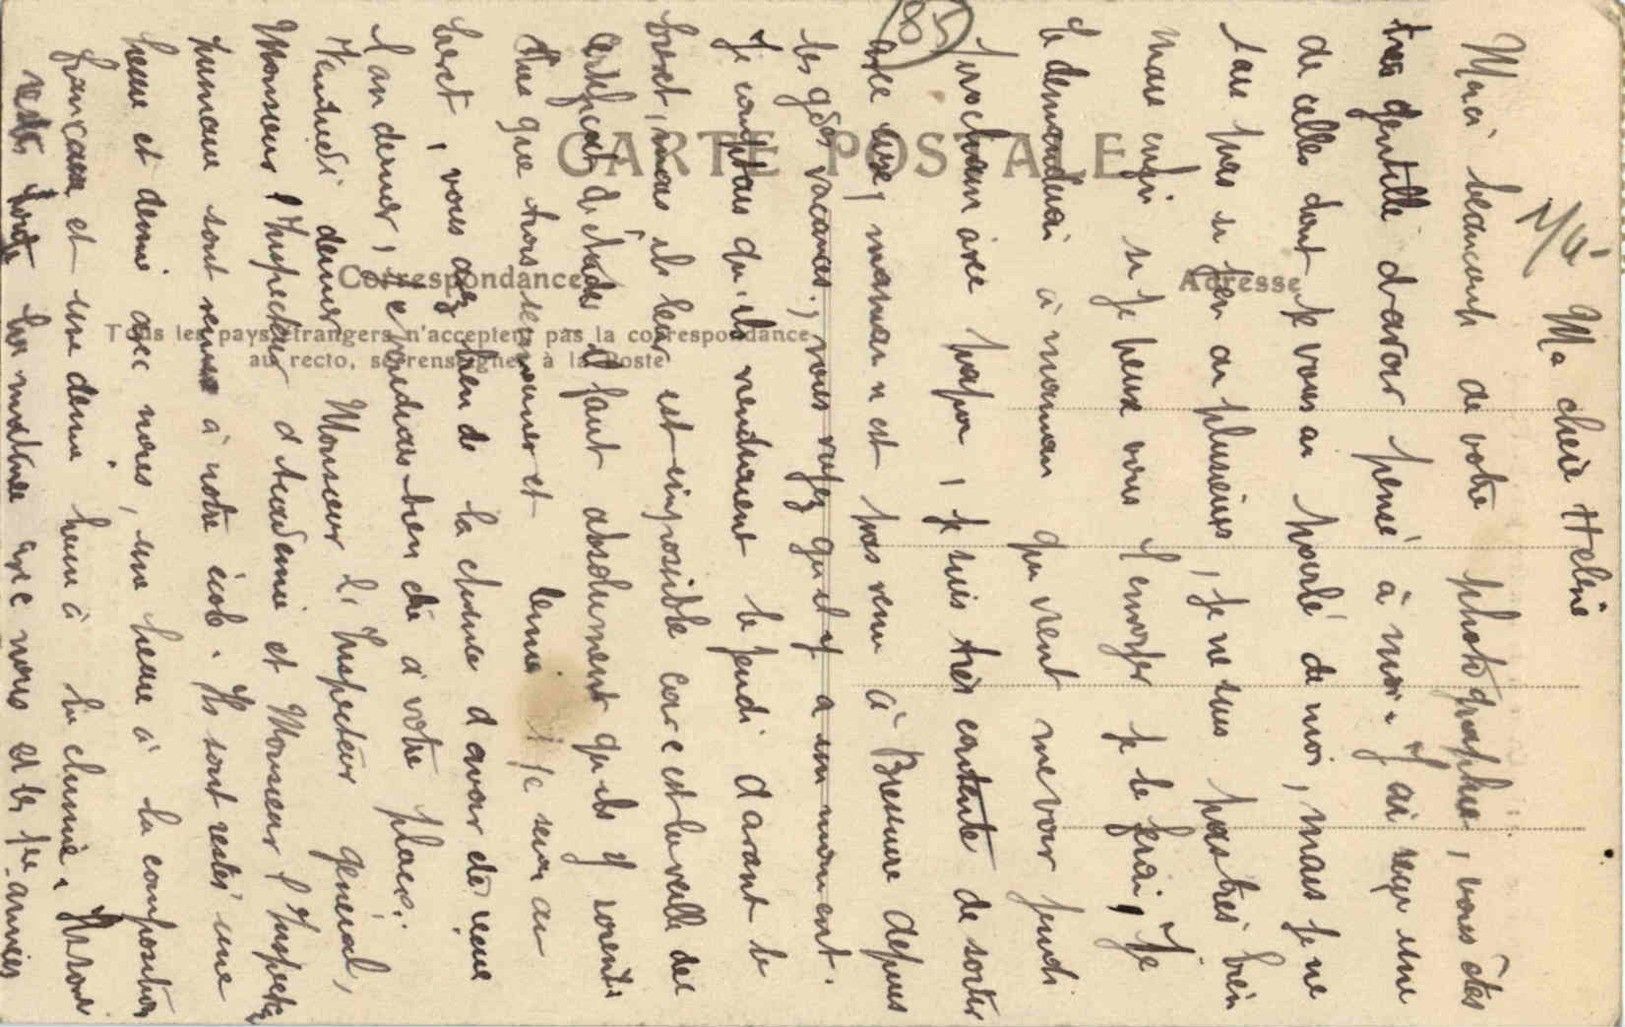 CARTE POSTALE
Correspondance
Adresse
Tous les pays étrangers n'acceptent pas la correspondance
au recto, se renseigner à la Poste
85
Ma chère Helène
Merci beaucoup de votre photographie, vous êtes
très gentille d'avoir pensé à moi. J'ai reçu une
de celles dont je vous ai parlé de moi, mais je ne
sais pas si j'en ai plusieurs, je ne suis pas très bien
mais enfin si je peux vous l'envoyer je le ferai, Je
le demanderai à maman qui vient me voir jeudi
prochain avec papa, je suis très contente de sortir
avec eux, maman n'est pas venu à Beaune depuis
les gdes vacances, vous voyez qu'il y a un moment.
Je comptais qu'ils viendraient le jeudi avant le
brevet, mais ils leur est impossible car c'est la veille du
certificat d'études il faut absolument qu'ils y soient.
Plus que trois semaines et demie et je serai au
brevet, vous avez bien de la chance d'avoir été reçue
l'an dernier, je voudrais bien être à votre place.
Vendredi dernier Monsieur l'Inspecteur général,
Monsieur l'Inspecteur d'Académie et Monsieur l'Inspecteur
primaire sont venus à notre école. Ils sont restés une
heure et demie avec nous, une heure à la composition
française et une demie heure à la chimie.
reste toute la matinée avec nous et les 1re années